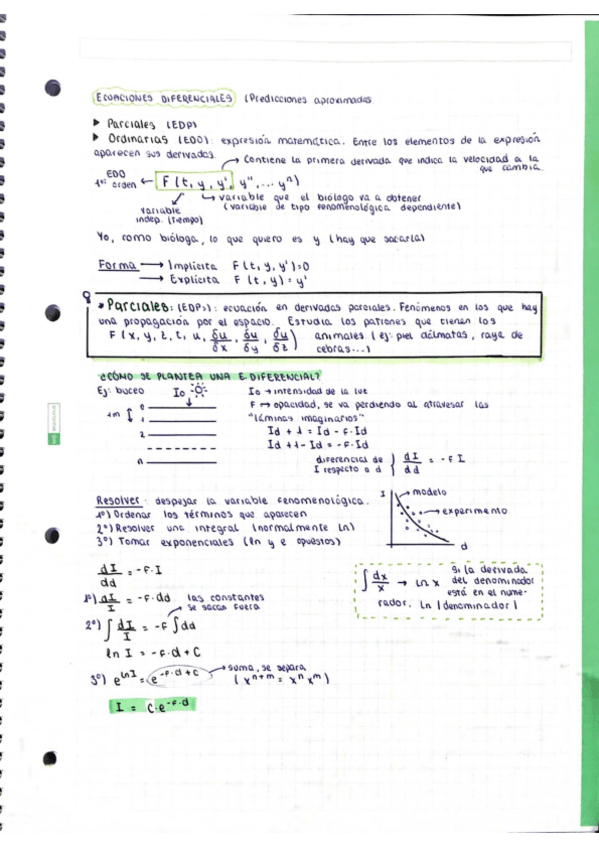 ECUACIONES DIFERENCIALES (Predicciones aproximadas
▶ Parciales (EDP)
▶ Ordinarias (EDO): expresión matemática. Entre los elementos de la expresión
aparecen sus derivadas.
→ Contiene la primera derivada que indica la velocidad a la
que cambia.
EDO
1er orden ← F(t, y, y', y'', ... yⁿ)
→ variable que el biólogo va a obtener
(variable de tipo fenomenológica dependiente)
variable
indep. (tiempo)
Yo, como bióloga, lo que quiero es y (hay que sacarla)
Forma → Implícita F(t, y, y')=0
→ Explícita F(t, y) = y'
* Parciales: (EDPs): ecuación en derivadas parciales. Fenómenos en los que hay
una propagación por el espacio. Estudia los patrones que tienen los
F(x, y, z, t, u, δu/δx, δu/δy, δu/δz) animales (ej: piel dálmatas, raya de
cebras...)
¿CÓMO SE PLANTEA UNA E·DIFERENCIAL?
Ej: buceo I₀
1m 0
1
2
n
I₀ → intensidad de la luz
F → opacidad, se va perdiendo al atravesar las
"láminas imaginarias"
Id + 1 = Id - F·Id
Id + 1 - Id = - F·Id
diferencial de
I respecto a d { dI/dd = - F I
Resolver: despejar la variable fenomenológica.
1º) Ordenar los términos que aparecen
2º) Resolver una integral (normalmente ln)
3º) Tomar exponenciales (ln y e opuestos)
I → modelo
→ experimento
d
dI/dd = -F·I
1º) dI/I = -F·dd las constantes
→ se sacan fuera
2º) ∫ dI/I = -F ∫ dd
ln I = -F·d + C
3º) e^lnI = e^-F·d+C → suma, se separa
(xⁿ⁺ᵐ = xⁿ xᵐ)
I = C·e^-F·d
∫ dx/x → ln x
Si la derivada
del denominador
está en el nume-
rador. Ln |denominador|